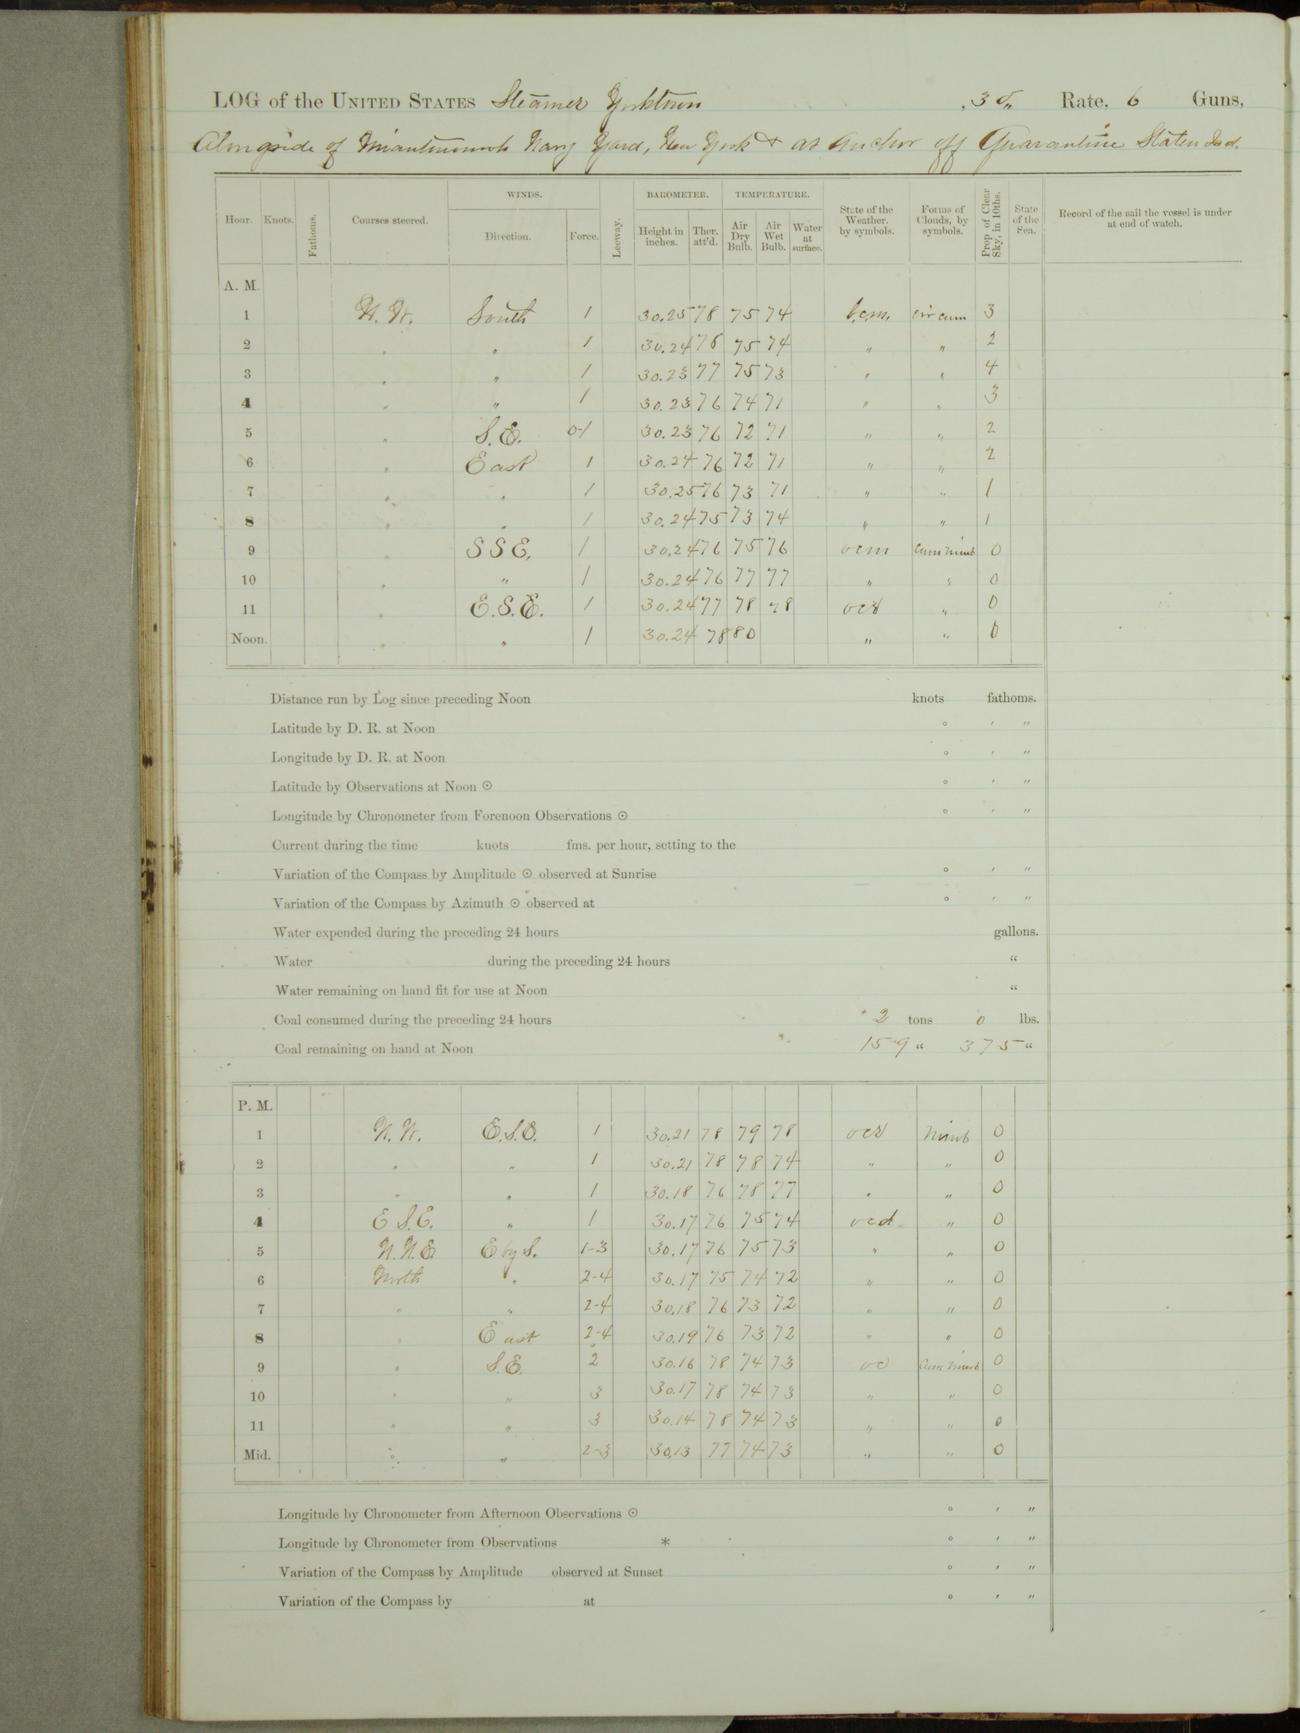 LOG of the UNITED STATES Steamer Yorktown , 3 d Rate, 6 Guns,
Alongside of Miantonomoh Navy Yard, New York & at anchor off Quarantine Staten Isd.
Hour. Knots. Fathoms. Courses steered. WINDS. Direction. Force. Leeway. BAROMETER. Height in inches. Ther. att'd. TEMPERATURE. Air Dry Bulb. Air Wet Bulb. Water at surface. State of the Weather. by symbols. Forms of Clouds, by symbols. Prop of Clear Sky, in 10ths. State of the Sea. Record of the sail the vessel is under at end of watch.
A. M.
1 N. W. South 1 30.25 78 75 74 b.c.m. cir cum 3
2 " " 1 30.24 78 75 74 " " 2
3 " " 1 30.23 77 75 73 " " 4
4 " " 1 30.23 76 74 71 " " 3
5 " S. E. 0-1 30.23 76 72 71 " " 2
6 " East 1 30.24 76 72 71 " " 2
7 " " 1 30.25 76 73 71 " " 1
8 " " 1 30.24 75 73 74 " " 1
9 " S S E. 1 30.24 76 75 76 ocm cum nimb 0
10 " " 1 30.24 76 77 77 " " 0
11 " E. S. E. 1 30.24 77 78 78 ocr " 0
Noon. " " 1 30.24 78 80 " " 0
Distance run by Log since preceding Noon knots fathoms.
Latitude by D. R. at Noon ° ′ ″
Longitude by D. R. at Noon ° ′ ″
Latitude by Observations at Noon ☉ ° ′ ″
Longitude by Chronometer from Forenoon Observations ☉ ° ′ ″
Current during the time knots fms. per hour, setting to the
Variation of the Compass by Amplitude ☉ observed at Sunrise ° ′ ″
Variation of the Compass by Azimuth ☉ observed at ° ′ ″
Water expended during the preceding 24 hours gallons.
Water during the preceding 24 hours “
Water remaining on hand fit for use at Noon “
Coal consumed during the preceding 24 hours 2 tons 0 lbs.
Coal remaining on hand at Noon 159 “ 375 “
P. M.
1 N. W. E. S. E. 1 30.21 78 79 78 ocr Nimb 0
2 " " 1 30.21 78 78 74 " " 0
3 " " 1 30.18 76 78 77 " " 0
4 E S. E. " 1 30.17 76 75 74 ocd " 0
5 N. N. E E by S. 1-3 30.17 76 75 73 " " 0
6 North " 2-4 30.17 75 74 72 " " 0
7 " " 2-4 30.18 76 73 72 " " 0
8 " East 2-4 30.19 76 73 72 " " 0
9 " S. E. 2 30.16 78 74 73 oc Cum Nimb 0
10 " " 3 30.17 78 74 73 " " 0
11 " " 3 30.14 78 74 73 " " 0
Mid. " " 2-3 30.13 77 74 73 " " 0
Longitude by Chronometer from Afternoon Observations ☉ ° ′ ″
Longitude by Chronometer from Observations * ° ′ ″
Variation of the Compass by Amplitude observed at Sunset ° ′ ″
Variation of the Compass by at ° ′ ″